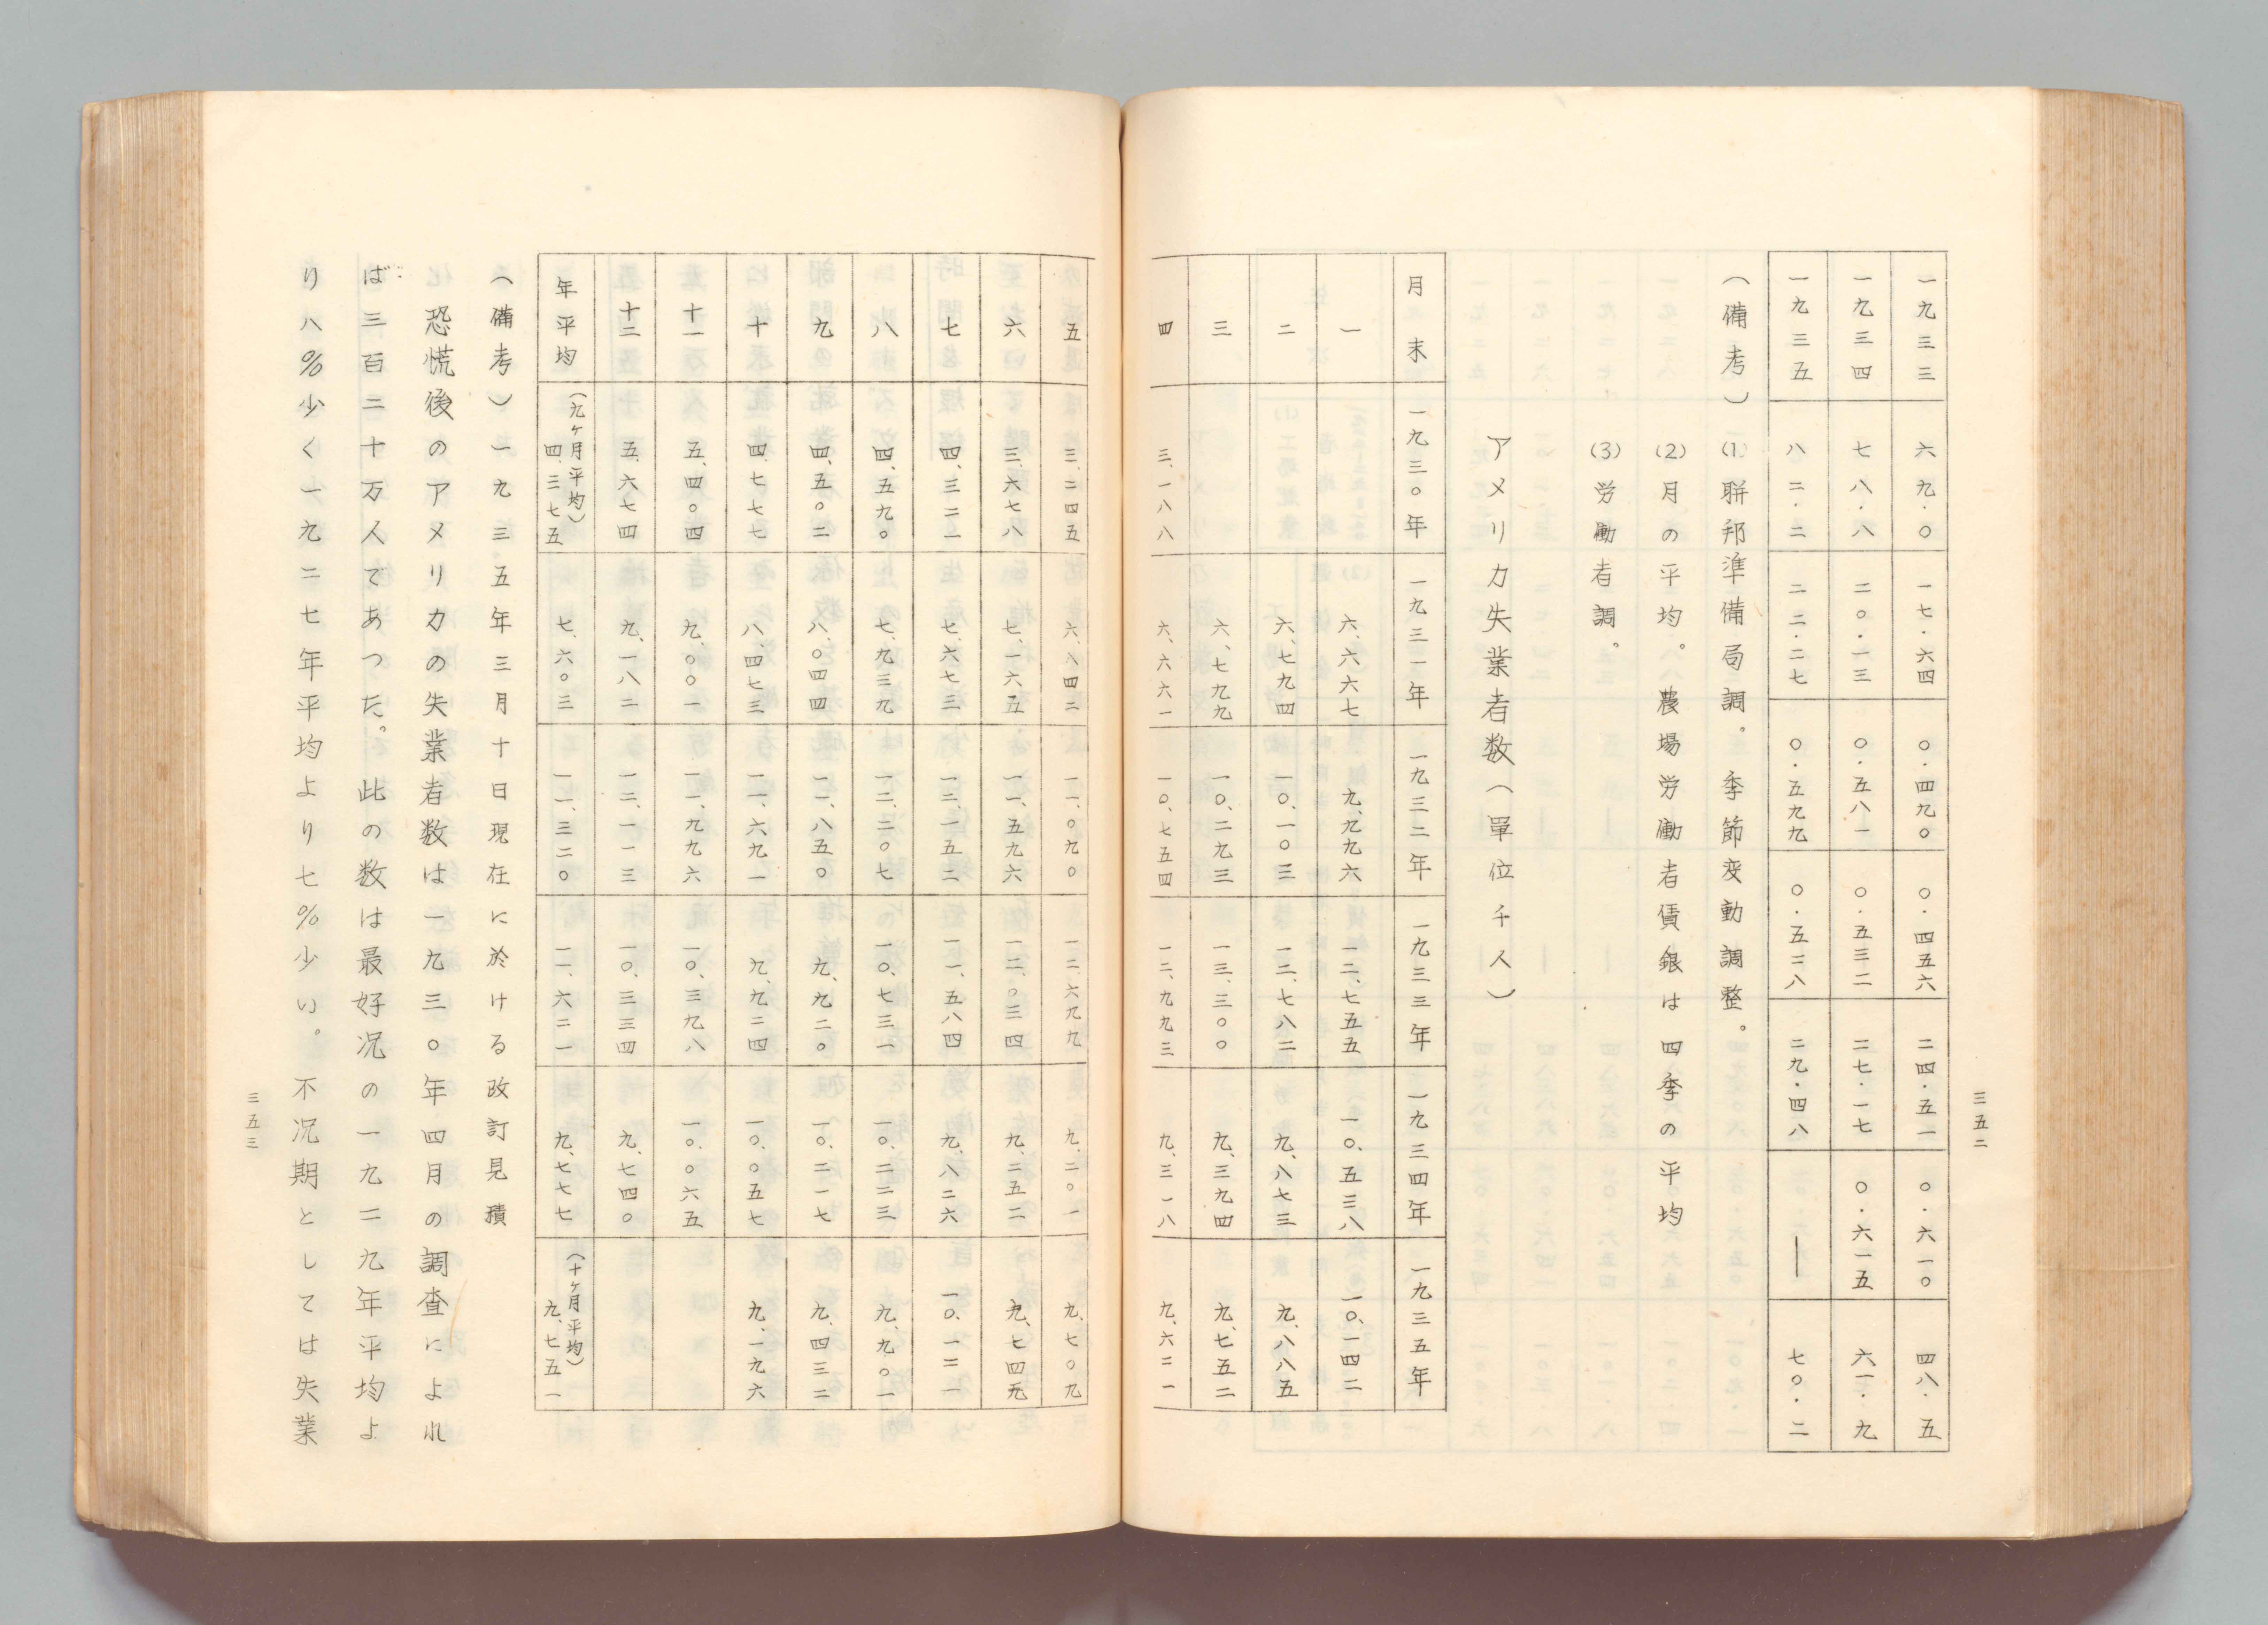 三五二
一九三三 六九・〇 一七・六四 〇・四九〇 〇・四五六 二四・五一 〇・六一〇 四八・五
一九三四 七八・八 二〇・一三 〇・五八一 〇・五三二 二七・一七 〇・六一五 六一・九
一九三五 八二・二 二二・二七 〇・五九九 〇・五二八 二九・四八 ― 七〇・二
(備考) (1)聯邦準備局調。季節変動調整。
(2)月の平均。農場労働者賃銀は四季の平均
(3)労働者調。
アメリカ失業者数(單位千人)
月末 一九三〇年 一九三一年 一九三二年 一九三三年 一九三四年 一九三五年
一 六、六六七 九、九九六 一二、七五五 一〇、五三八 一〇、一四二
二 六、七九四 一〇、一〇三 一二、七八二 九、八七三 九、八八五
三 六、七九九 一〇、二九三 一三、三〇〇 九、三九四 九、七五二
四 三、一八八 六、六六一 一〇、七五四 一二、九九三 九、三一八 九、六二一
五 三、二四五 六、八四二 一一、〇九〇 一二、六九九 九、二〇一 九、七〇九
六 三、六七八 七、一六五 一一、五九六 一二、〇三四 九、二五二
七 四、三二一 七、六七三 一二、一五二 一一、五八四 九、八二六 一〇、一二一
八 四、五九〇 七、九三九 一二、二〇七 一〇、七三一 一〇、二二三 九、九〇一
九 四、五〇二 八、〇四四 一一、八五〇 九、九二〇 一〇、二一七 九、四三二
十 四、七七七 八、四七三 一一、六九一 九、九二四 一〇、〇五七 九、一九六
十一 五、四〇四 九、〇〇一 一一、九九六 一〇、三九八 一〇、〇六五
十二 五、六七四 九、一八二 一二、一一三 一〇、三三四 九、七四〇
年平均 (九ヶ月平均)四、三七五 七、六〇三 一一、三二〇 一一、六二一 九、七七七 (十ヶ月平均)九、七五一
(備考)一九三五年三月十日現在に於ける改訂見積
恐慌後のアメリカの失業者数は一九三〇年四月の調査によれ
ば三百二十万人であつた。此の数は最好況の一九二九年平均よ
り八%少く一九二七年平均より七%少い。不況期としては失業
三五三